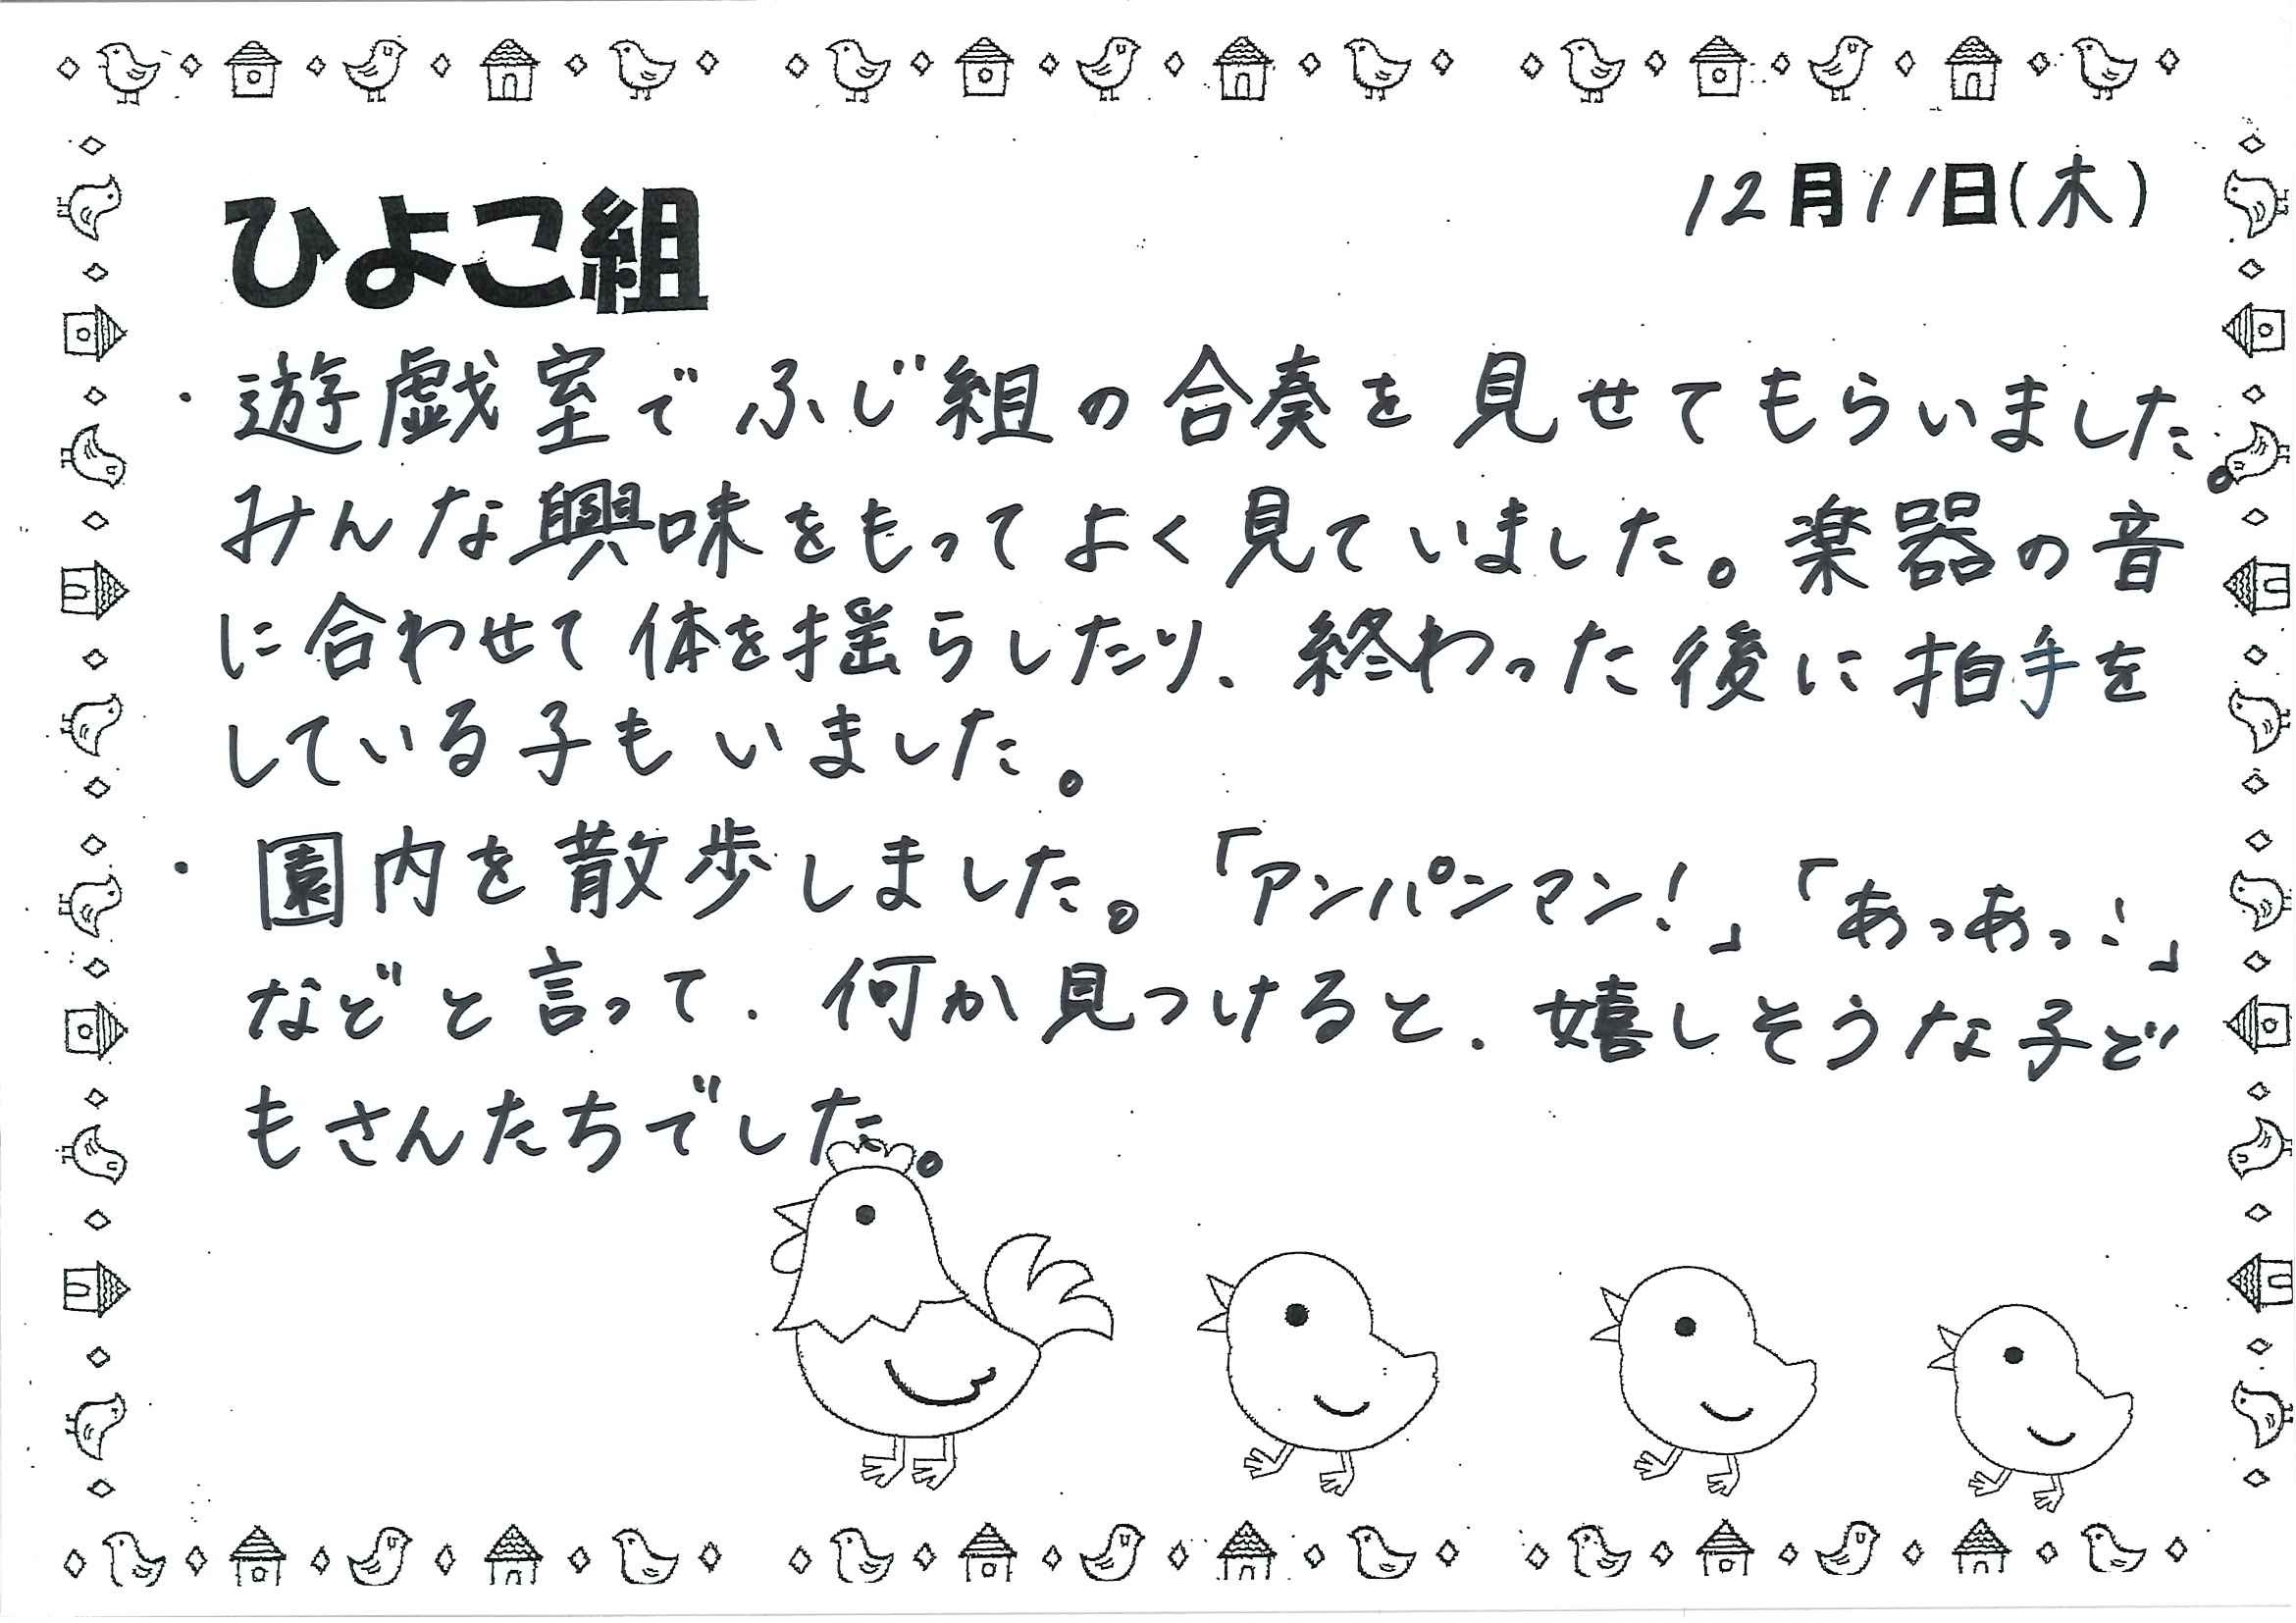 12月11日(木)
ひよこ組
・遊戯室でふじ組の合奏を見せてもらいました。
みんな興味をもってよく見ていました。楽器の音
に合わせて体を揺らしたり、終わった後に拍手を
している子もいました。
・園内を散歩しました。「アンパンマン!」「あっあっ!」
などと言って、何か見つけると、嬉しそうな子ど
もさんたちでした。